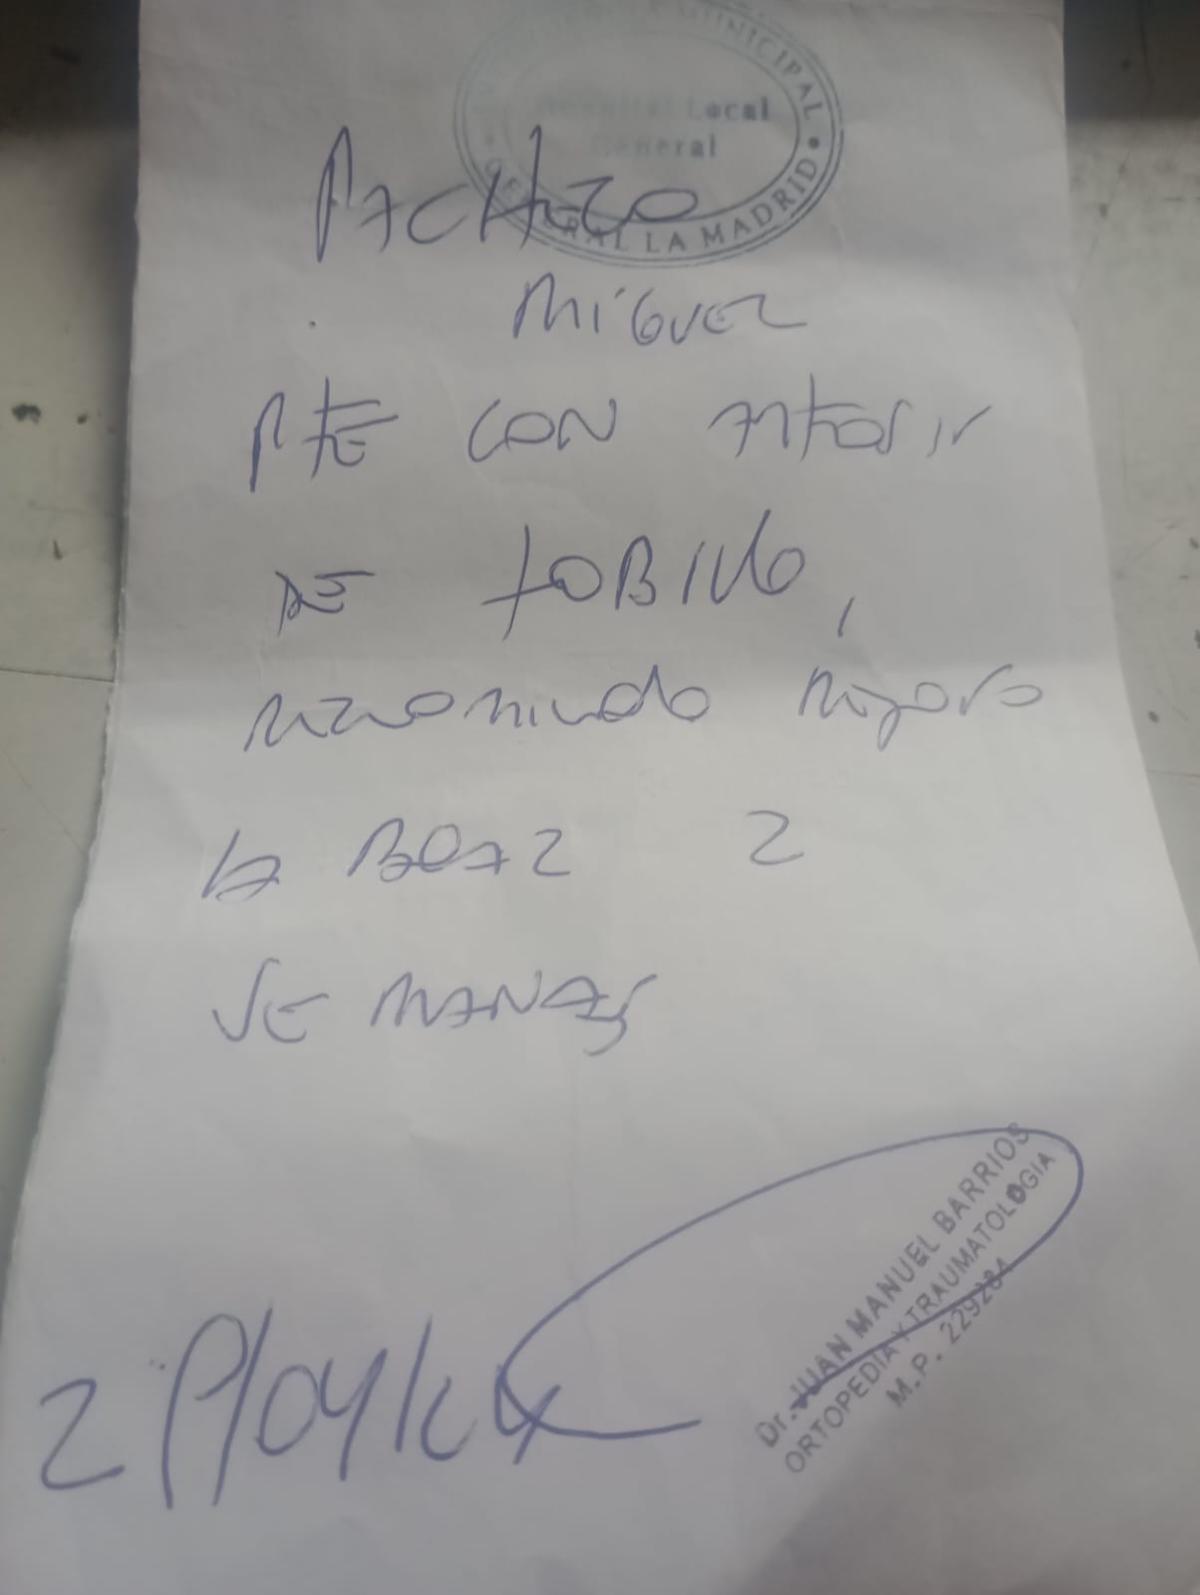 MUNICIPAL
Hospital Local
General
GENERAL LA MADRID
PACHECO
MIGUEL
PTE CON
DE TOBILLO,
RECOMIENDO REPOSO
LABORAL 2
SEMANAS
Dr. JUAN MANUEL BARRIOS
ORTOPEDIA Y TRAUMATOLOGIA
M.P. 229284